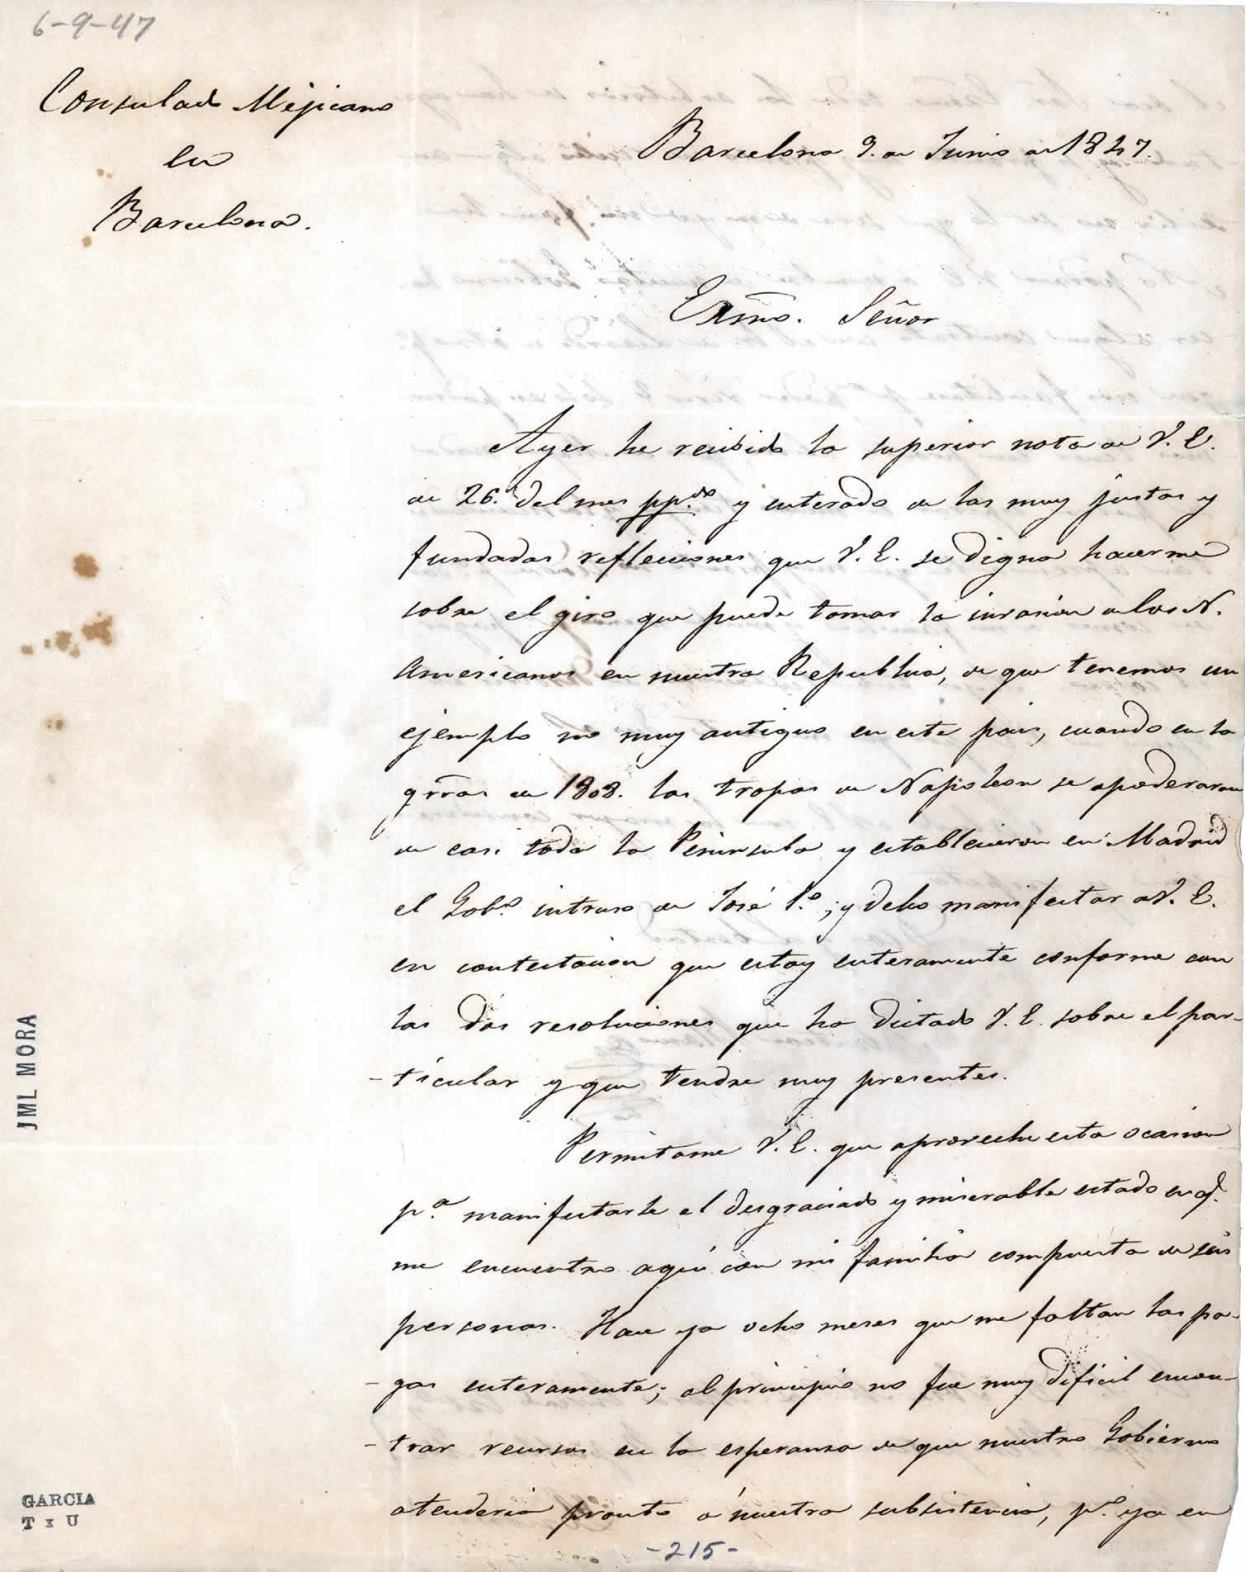 6-9-47
Consulado Mejicano
en
Barcelona.
Barcelona 9. de Junio de 1847.
Exmo. Señor
Ayer he recibido la superior nota de V. E.
de 26. del mes pp.do y enterado de las muy justas y
fundadas reflecciones que V. E. se digna hacerme
sobre el giro que puede tomar la invasion de los N.
Americanos en nuestra Republica, de que tenemos un
ejemplo no muy antiguo en este pais, cuando en la
grras de 1808. las tropas de Napoleon se apoderaron
de casi toda la Peninsula y establecieron en Madrid
el Gob.o intruso de José 1.o; y debo manifestar a V. E.
en contestacion que estoy enteramente conforme con
las dos resoluciones que ha dictado V. E. sobre el par-
-ticular y que tendre muy presentes.
Permitame V. E. que aproveche esta ocasion
p.a manifestarle el desgraciado y miserable estado en q.e
me encuentro aqui con mi familia compuesta de seis
personas. Hace ya ocho meses que me faltan las pa-
-gas enteramente; al principio no fue muy dificil encon-
-trar recursos en la esperanza de que nuestro Gobierno
atenderia pronto á nuestra subsistencia, p.o ya en
-215-
JML MORA
GARCIA
T x U